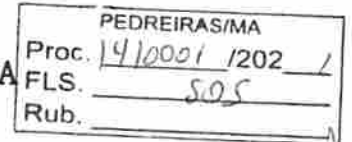 PEDREIRAS/MA
Proc. 1410001 /202 1
A FLS. 505
Rub.